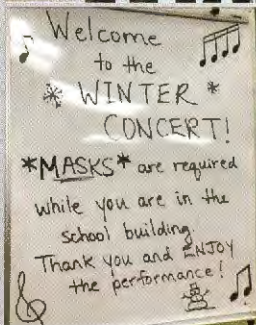 Welcome
to the
* WINTER *
CONCERT!
*MASKS* are required
while you are in the
school building.
Thank you and ENJOY
the performance!